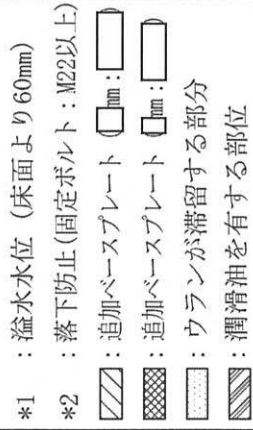 *1　：溢水水位 (床面より60mm)
*2　：落下防止(固定ボルト：M22以上)
：追加ベースプレート mm：
：追加ベースプレート mm：
：ウランが滞留する部分
：潤滑油を有する部位